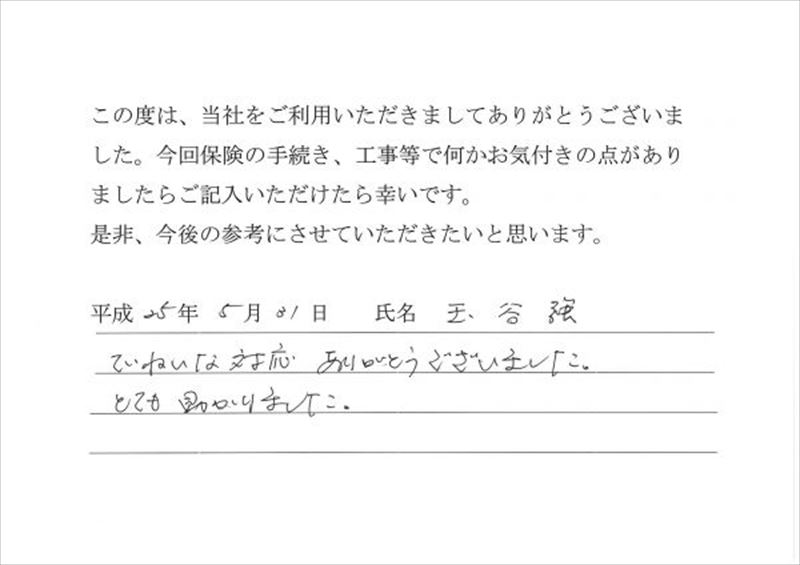 この度は、当社をご利用いただきましてありがとうございま
した。今回保険の手続き、工事等で何かお気付きの点があり
ましたらご記入いただけたら幸いです。
是非、今後の参考にさせていただきたいと思います。
平成25年5月31日 氏名 玉谷強
ていねいな対応 ありがとうございました。
とても助かりました。